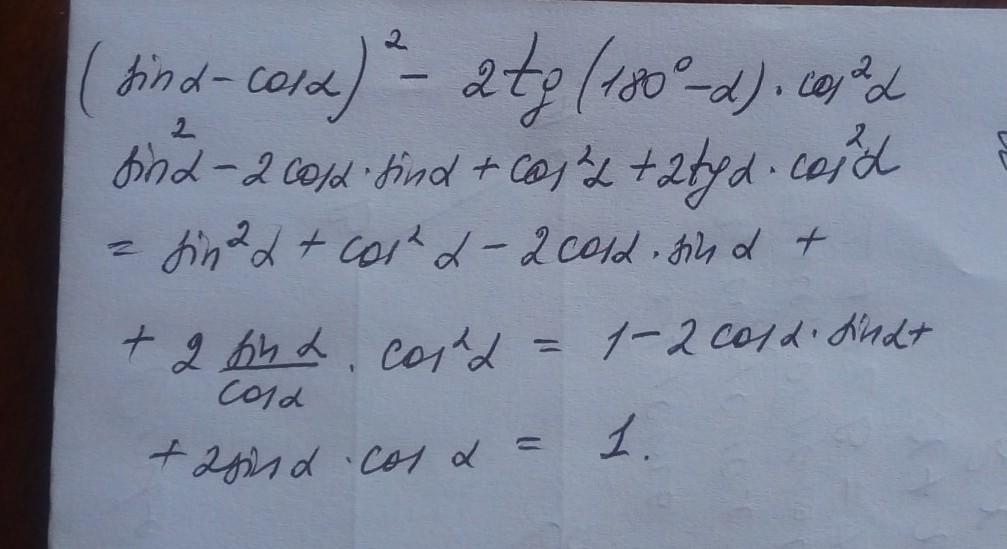 (sinα - cosα)² - 2tg(180° - α) · cos²α
sin²α - 2cosα · sinα + cos²α + 2tgα · cos²α
= sin²α + cos²α - 2cosα · sinα +
+ 2 sinα/cosα · cos²α = 1 - 2cosα · sinα +
+ 2sinα · cosα = 1.